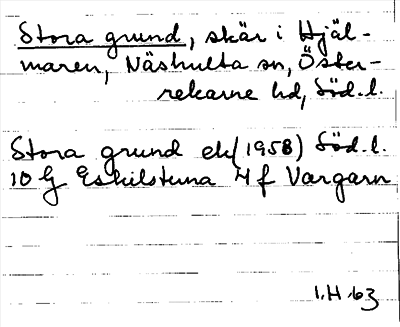 Stora grund, skär i Hjäl-
maren, Näshulta sn, Öster-
rekarne hd, Söd.l.
Stora grund ek (1958) Söd.l.
10 G Eskilstuna 4 f Vargarn
1.H 63